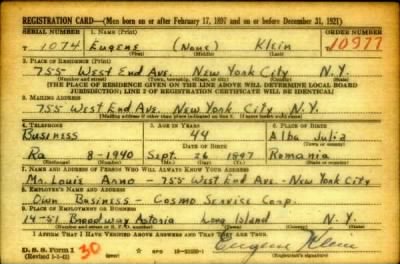 REGISTRATION CARD—(Men born on or after February 17, 1897 and on or before December 31, 1921)
SERIAL NUMBER 1. NAME (Print) ORDER NUMBER
T 1074 Eugene (None) Klein 10977
(First) (Middle) (Last)
2. PLACE OF RESIDENCE (Print)
755 West End Ave. New York City N.Y.
(Number and street) (Town, township, village, or city) (County) (State)
[THE PLACE OF RESIDENCE GIVEN ON THE LINE ABOVE WILL DETERMINE LOCAL BOARD
JURISDICTION; LINE 2 OF REGISTRATION CERTIFICATE WILL BE IDENTICAL]
3. MAILING ADDRESS
755 West End Ave. New York City N.Y.
(Mailing address if other than place indicated on line 2. If same insert word same)
4. TELEPHONE 5. AGE IN YEARS 6. PLACE OF BIRTH
Business 44 Alba Julia
DATE OF BIRTH
8-1940 Sept. 26 1897 Romania
(Exchange) (Number) (Mo.) (Day) (Yr.) (State or country)
7. NAME AND ADDRESS OF PERSON WHO WILL ALWAYS KNOW YOUR ADDRESS
Mr. Louis Anno - 755 West End Ave. - New York City
8. EMPLOYER'S NAME AND ADDRESS
Own Business - Cosmo Service Corp.
9. PLACE OF EMPLOYMENT OR BUSINESS
14-51 Broadway Astoria Long Island N.Y.
(Number and street or R. F. D. number) (Town) (County) (State)
I AFFIRM THAT I HAVE VERIFIED ABOVE ANSWERS AND THAT THEY ARE TRUE.
D. S. S. Form 1 30 GPO Eugene Klein